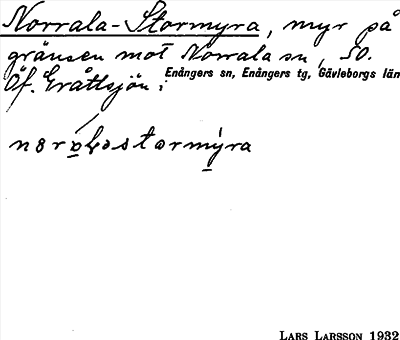 Norrala-Stormyra, myr på
gränsen mot Norrala sn, SO.
Enångers sn, Enångers tg, Gävleborgs län
Öf. Gråttsjön;
LARS LARSSON 1932